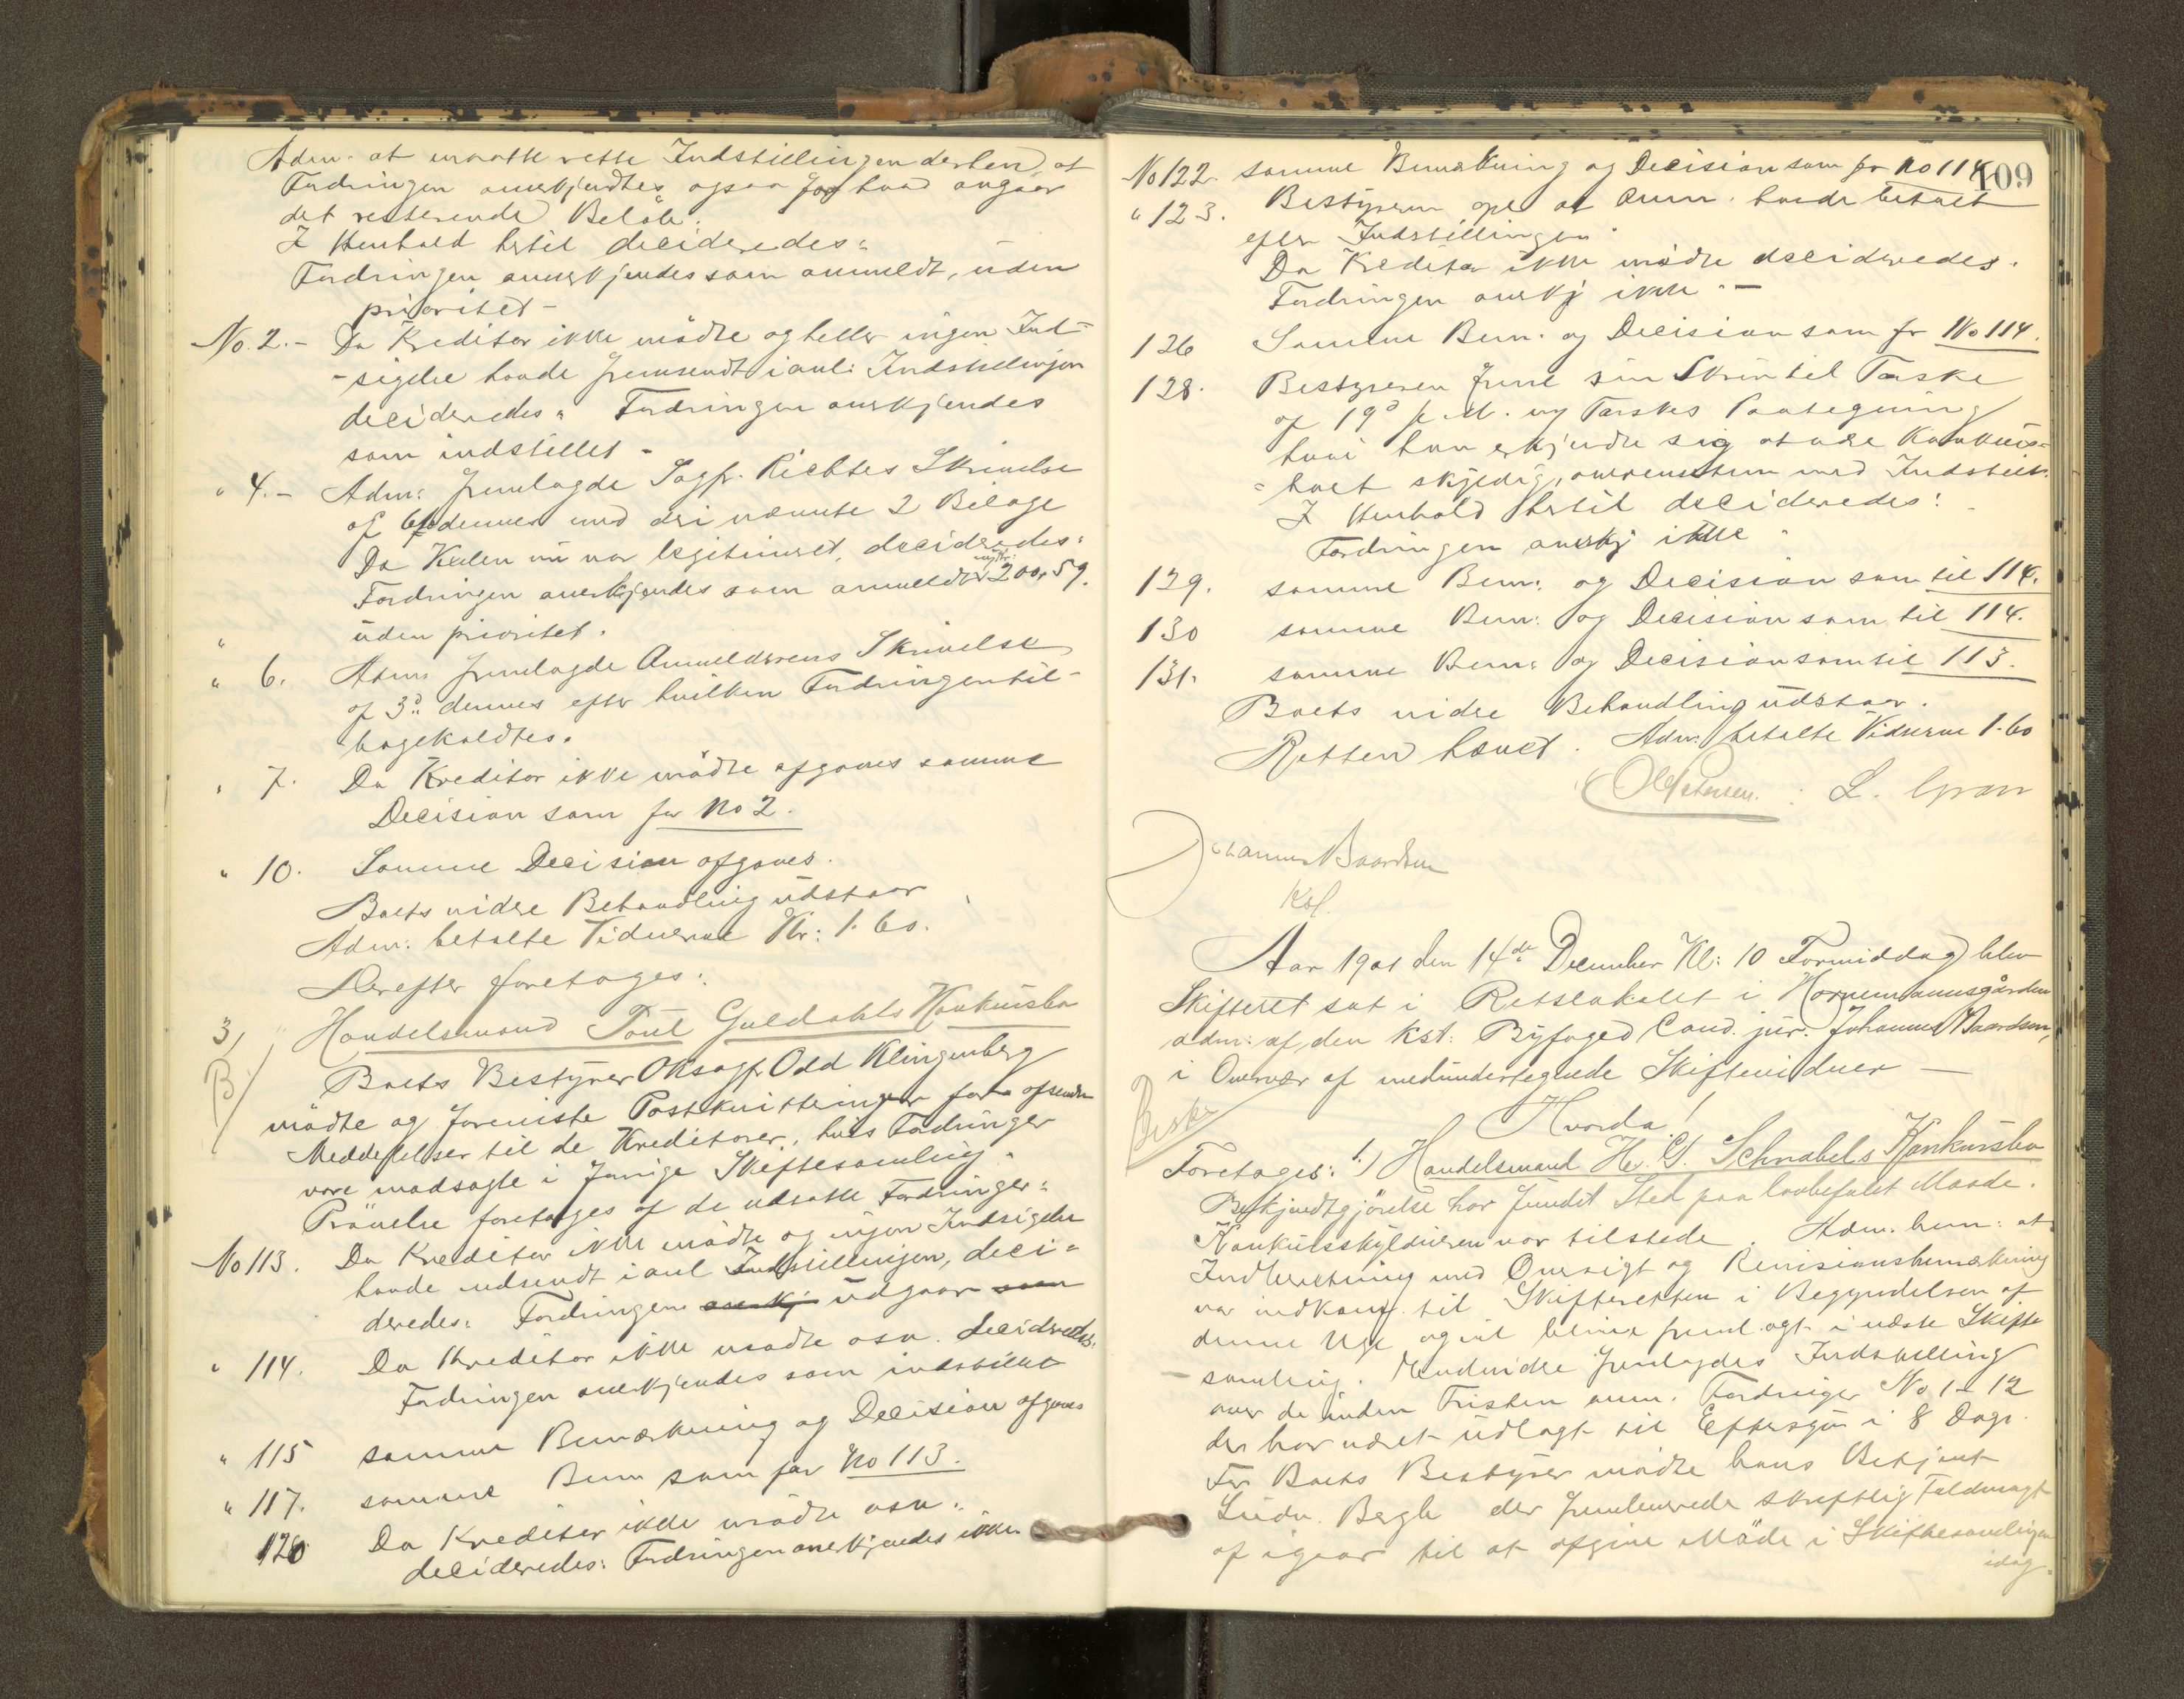 Adm. at maatte rette Indstillingen derhen, at
Fordringen anerkjendtes ogsaa for hvad angaar
det resterende Beløb.
I Henhold hertil decideredes:
Fordringen anerkjendes som anmeldt, uden
prioritet –
No. 2. – Da Kreditor ikke mødte og heller ingen Ind-
-sigelse havde fremsendt i anl: Indstillingen
decideredes: Fordringen anerkjendes
som indstillet –
" 4. – Adm: fremlagde Sagf. Richters Skrivelse
af dennes med deri nævnte 2 Bilage
Da nu var legitimeret, decideredes:
Fordringen anerkjendes som anmeldt 200,59.
uden prioritet.
" 6. Adm. fremlagde Anmelderens Skrivelse
af 3d: dennes efter hvilken Fordringen til-
bagekaldtes.
" 7. Da Kreditor ikke mødte afgaves samme
Decision som for No 2.
" 10. Samme Decision afgaves.
Boets videre Behandling udstaar
Adm. betalte Vidnerne Kr: 1.60.
Derefter foretoges:
3, Handelsmand Poul Guldahls Konkursbo
B Boets Bestyrer Oksagf. Odd Klingenberg
mødte og foreviste Postkvitteringer for afsendte
Meddelelser til de Kreditorer, hvis Fordringer
vare modsagte i forrige Skiftesamling.
Prøvelse foretoges af de udsatte Fordringer:
No 113. Da Kreditor ikke mødte og ingen Indsigelse
havde udsendt i anl Indstillingen, deci-
deredes: Fordringen anerkj udgaar som
" 114. Da Kreditor ikke mødte osv. decideredes:
Fordringen anerkjendes som indstillet
" 115 samme Bemærkning og Decision afgaves
" 117. samme Bem som for No 113.
120 Da Kreditor ikke mødte osv.
decideredes: Fordringen anerkjendes ikke
109
No 122. samme Bemærkning og Decision som for No 114
" 123. Bestyreren opl at Anm. havde betalt
efter Indstillingen.
Da Kreditor ikke mødte decideredes.
Fordringen anerkj ikke –
126 Samme Bem: og Decision som for No 114.
128. Bestyreren freml sin Skriv til Taske
af 19d f. M. og Taskes Paategning
hvori han erkjendte sig at være Konkurs-
-boet skyldig, overensstem med Indstill.
I Henhold hertil decideredes:
Fordringen anerkj ikke
129. samme Bem: og Decision som til 114.
130 samme Bem: og Decision som til 114.
131. samme Bem: og Decision som til 113.
Boets videre Behandling udstaar.
Retten hævet. Adm: betalte Vidnerne 1.60
Petersen. L. Gran
Johannes Baardsen
Kst.
Aar 1901 den 14de December Kl: 10 Formiddag blev
Skifteret sat i Retslokalet i Hornemannsgården
adm: af den kst: Byfoged Cand. jur. Johannes Baardsen,
i Overvær af medundertegnede Skiftevidner –
Hvorda!
Besk.
Foretoges: 1.) Handelsmand H. G. Schnabels Konkursbo
Bekjendtgjørelse har fundet Sted paa lovbefalet Maade.
Konkursskyldneren var tilstede. Adm. bem: at
Indberetning med Oversigt og Revisionsbemærkning
var indkomf. til Skifteretten i Begyndelsen af
denne Uge og vil blive fremlagt i næste Skifte
-samling. Endvidere fremlagdes Indstilling
over de inden Fristen anm. Fordringer No 1 – 12
der har været udlagt til Eftersyn i 8 Dage.
For Boets Bestyrer mødte hans Betjent
Ludv. Bergh der fremleverede skriftlig Fuldmagt
af igaar til at afgive Møde i Skiftesamlingen
idag.